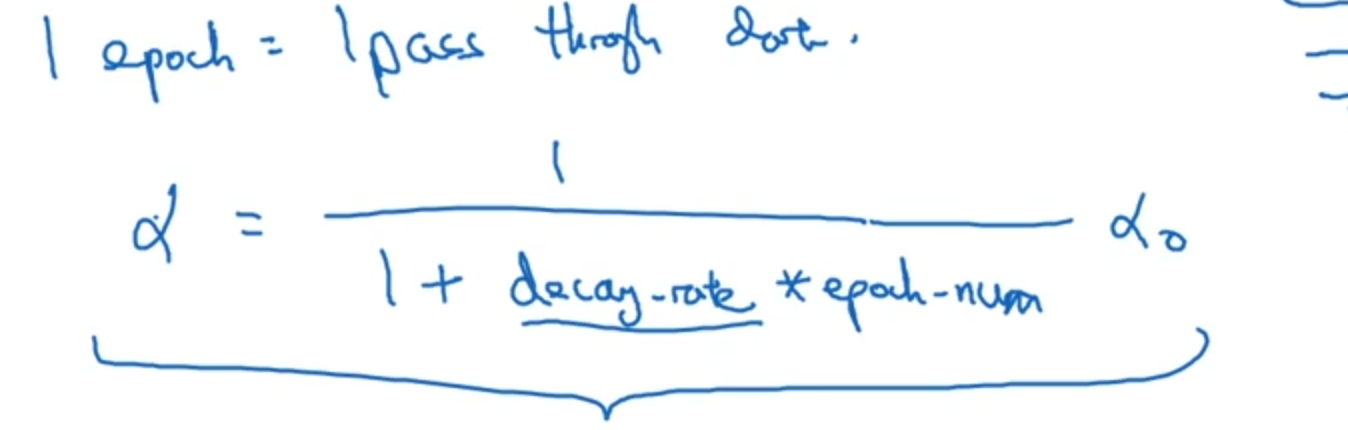 1 epoch = 1 pass through data.
α = 1 / (1 + decay-rate * epoch-num) α₀